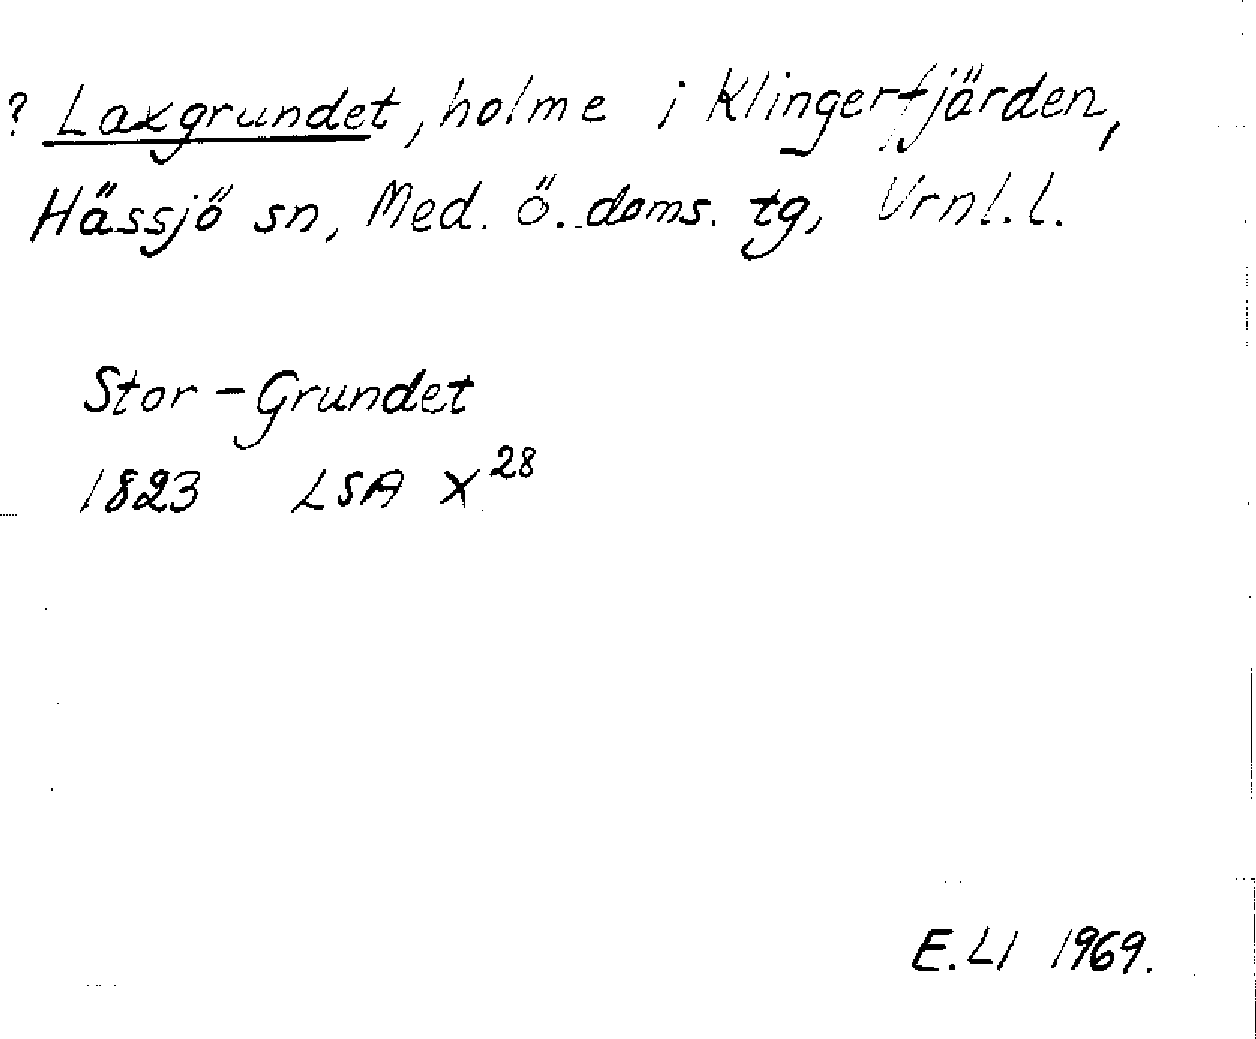 ? Laxgrundet, holme i Klingerfjärden,
Hässjö sn, Med. ö. doms. tg, Vrnl. l.
Stor-Grundet
1823 LSA X28
E. Ll 1969.